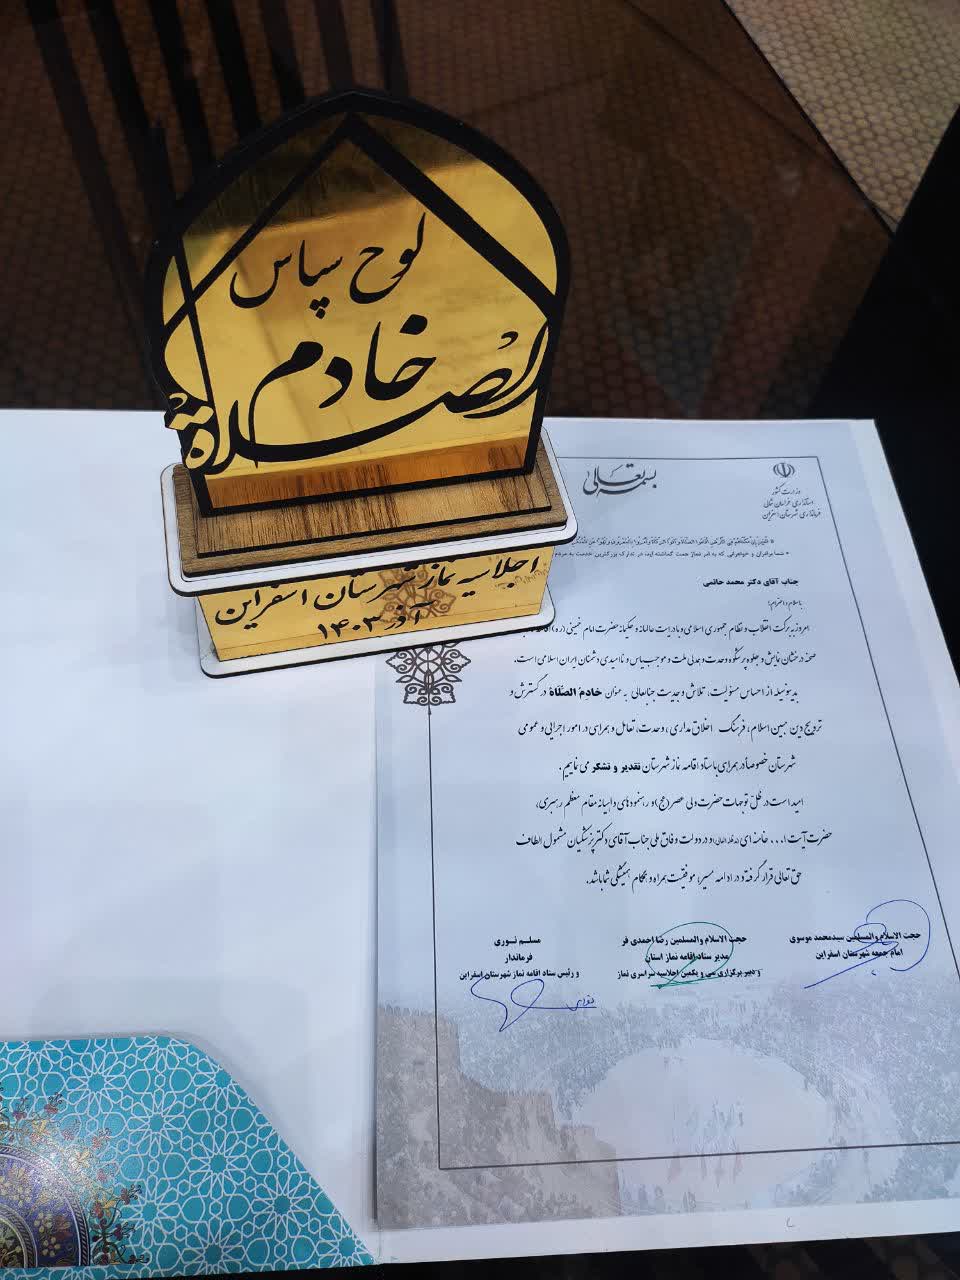 لوح سپاس
خادم
الصلاة
اجلاسیه نماز شهرستان اسفراین
آذر ۱۴۰۳
بسمه تعالی
وزارت کشور
استانداری خراسان شمالی
فرمانداری شهرستان اسفراین
الَّذِينَ إِنْ مَكَّنَّاهُمْ فِي الْأَرْضِ أَقَامُوا الصَّلَاةَ وَآتَوُا الزَّكَاةَ وَأَمَرُوا بِالْمَعْرُوفِ وَنَهَوْا عَنِ
شما برادران و خواهرانی که به امر نماز همت گماشته اید، در تدارک بزرگترین خدمت به مردم
جناب آقای دکتر محمد حاتمی
با سلام و احترام؛
امروز به برکت انقلاب و نظام جمهوری اسلامی و با درایت عالمانه و حکیمانه حضرت امام خمینی (ره)
صحنه درخشان نمایش و جلوه پرشکوه وحدت و همدلی ملت و موجب یاس و ناامیدی دشمنان ایران اسلامی است.
بدینوسیله از احساس مسئولیت، تلاش و جدیت جنابعالی به عنوان خادِمُ الصَّلَاة در گسترش و
ترویج دین مبین اسلام، فرهنگ اخلاق مداری، وحدت، تعامل و همرای در امور اجرایی و عمومی
شهرستان خصوصاً در همرای با ستاد اقامه نماز شهرستان تقدیر و تشکر می نماییم.
امید است در ظلّ توجهات حضرت ولی عصر (عج) و رهنمودهای داهیانه مقام معظم رهبری،
حضرت آیت ا... خامنه ای (مدظله العالی) و در دولت وفاق ملی جناب آقای دکتر پزشکیان مشمول الطاف
حق تعالی قرار گرفته و در ادامه مسیر، موفقیت همراه و همگام همیشگی شما باشد.
حجت الاسلام والمسلمین سیدمحمد موسوی
امام جمعه شهرستان اسفراین
حجت الاسلام والمسلمین رضا احمدی فر
مدیر ستاد اقامه نماز استان
و دبیر برگزاری سی و یکمین اجلاسیه سراسری نماز
مسلم نوری
فرماندار
و رئیس ستاد اقامه نماز شهرستان اسفراین